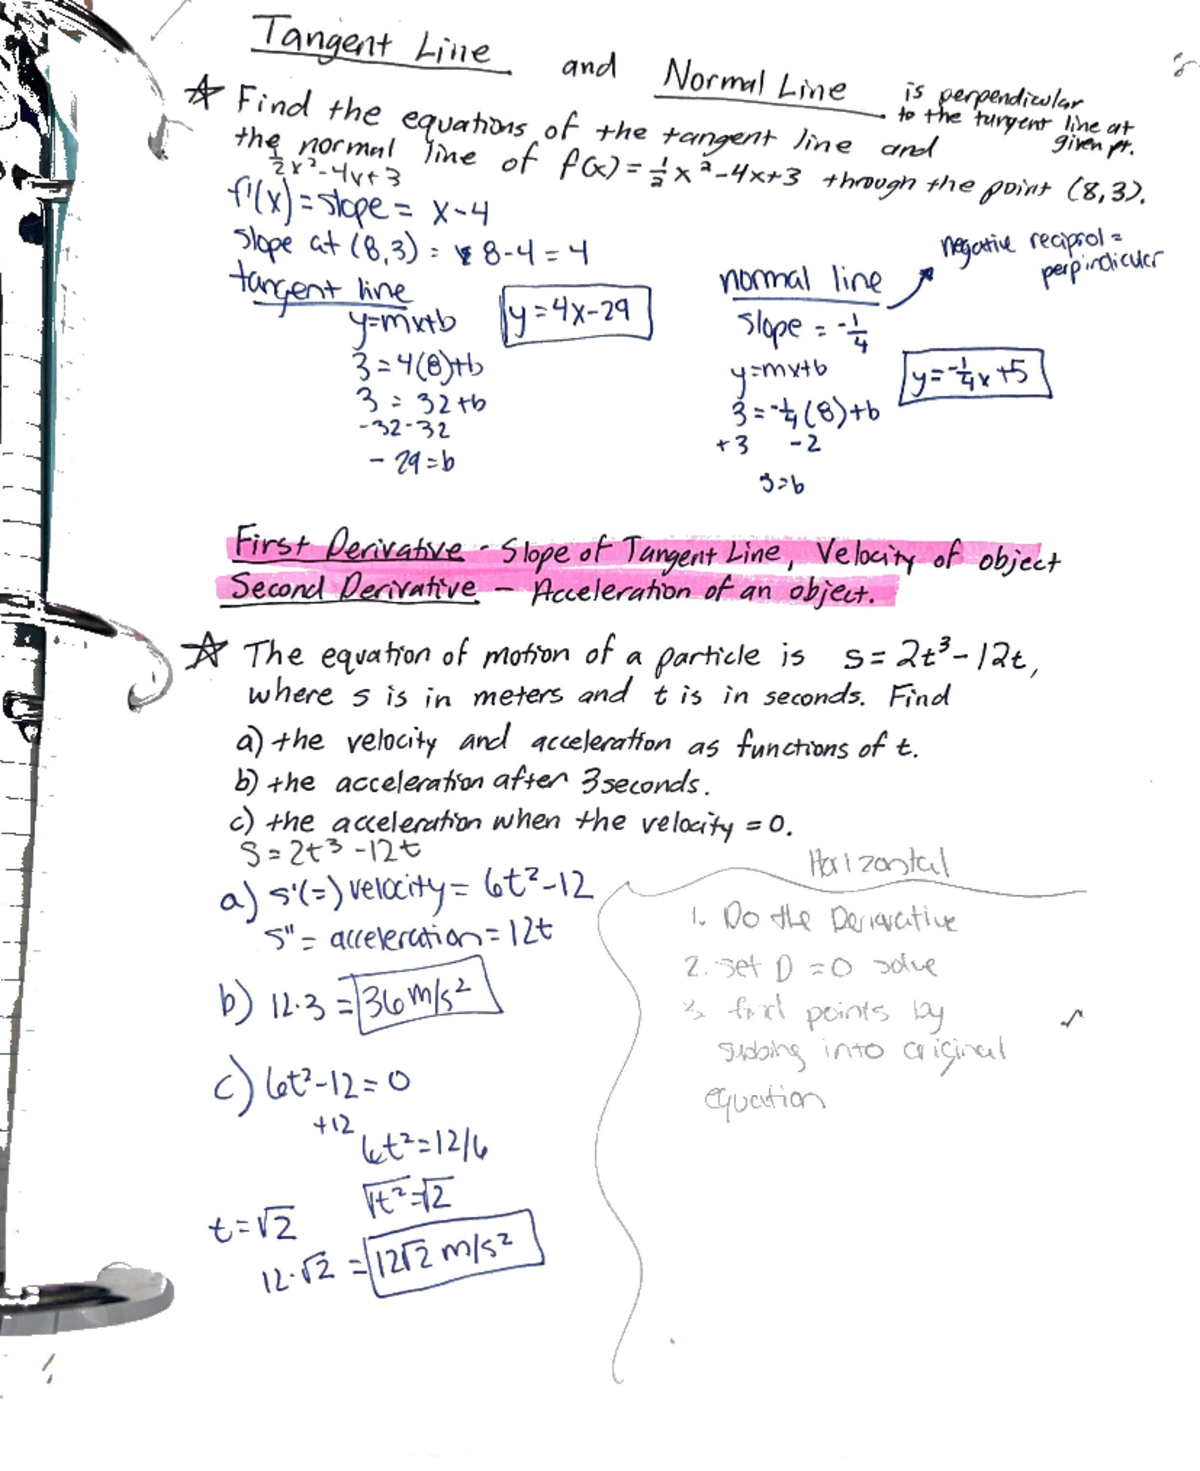 Tangent Line and Normal Line is perpendicular
to the tangent line at
given pt.
☆ Find the equations of the tangent line and
the normal line of f(x) = ½x²-4x+3 through the point (8,3).
½x²-4x+3
f'(x) = slope = x-4
slope at (8,3) = 8-4 = 4
tangent line
y=mx+b
y=4x-29
3=4(8)+b
3 = 32+b
-32-32
-29=b
negative reciprol =
perpindicular
normal line
slope = -¼
y=mx+b
y=-¼x+5
3=-¼(8)+b
+3 -2
5=b
First Derivative - Slope of Tangent Line, Velocity of object
Second Derivative - Acceleration of an object.
☆ The equation of motion of a particle is s = 2t³-12t,
where s is in meters and t is in seconds. Find
a) the velocity and acceleration as functions of t.
b) the acceleration after 3 seconds.
c) the acceleration when the velocity = 0.
S=2t³-12t
a) s'(=) velocity = 6t²-12
s" = acceleration = 12t
b) 12·3 = 36 m/s²
c) 6t²-12=0
+12
6t²=12/6
√t²=√2
t=√2
12·√2 = 12√2 m/s²
Horizontal
1. Do the Derivative
2. set D = 0 solve
3. find points by
subbing into original
equation